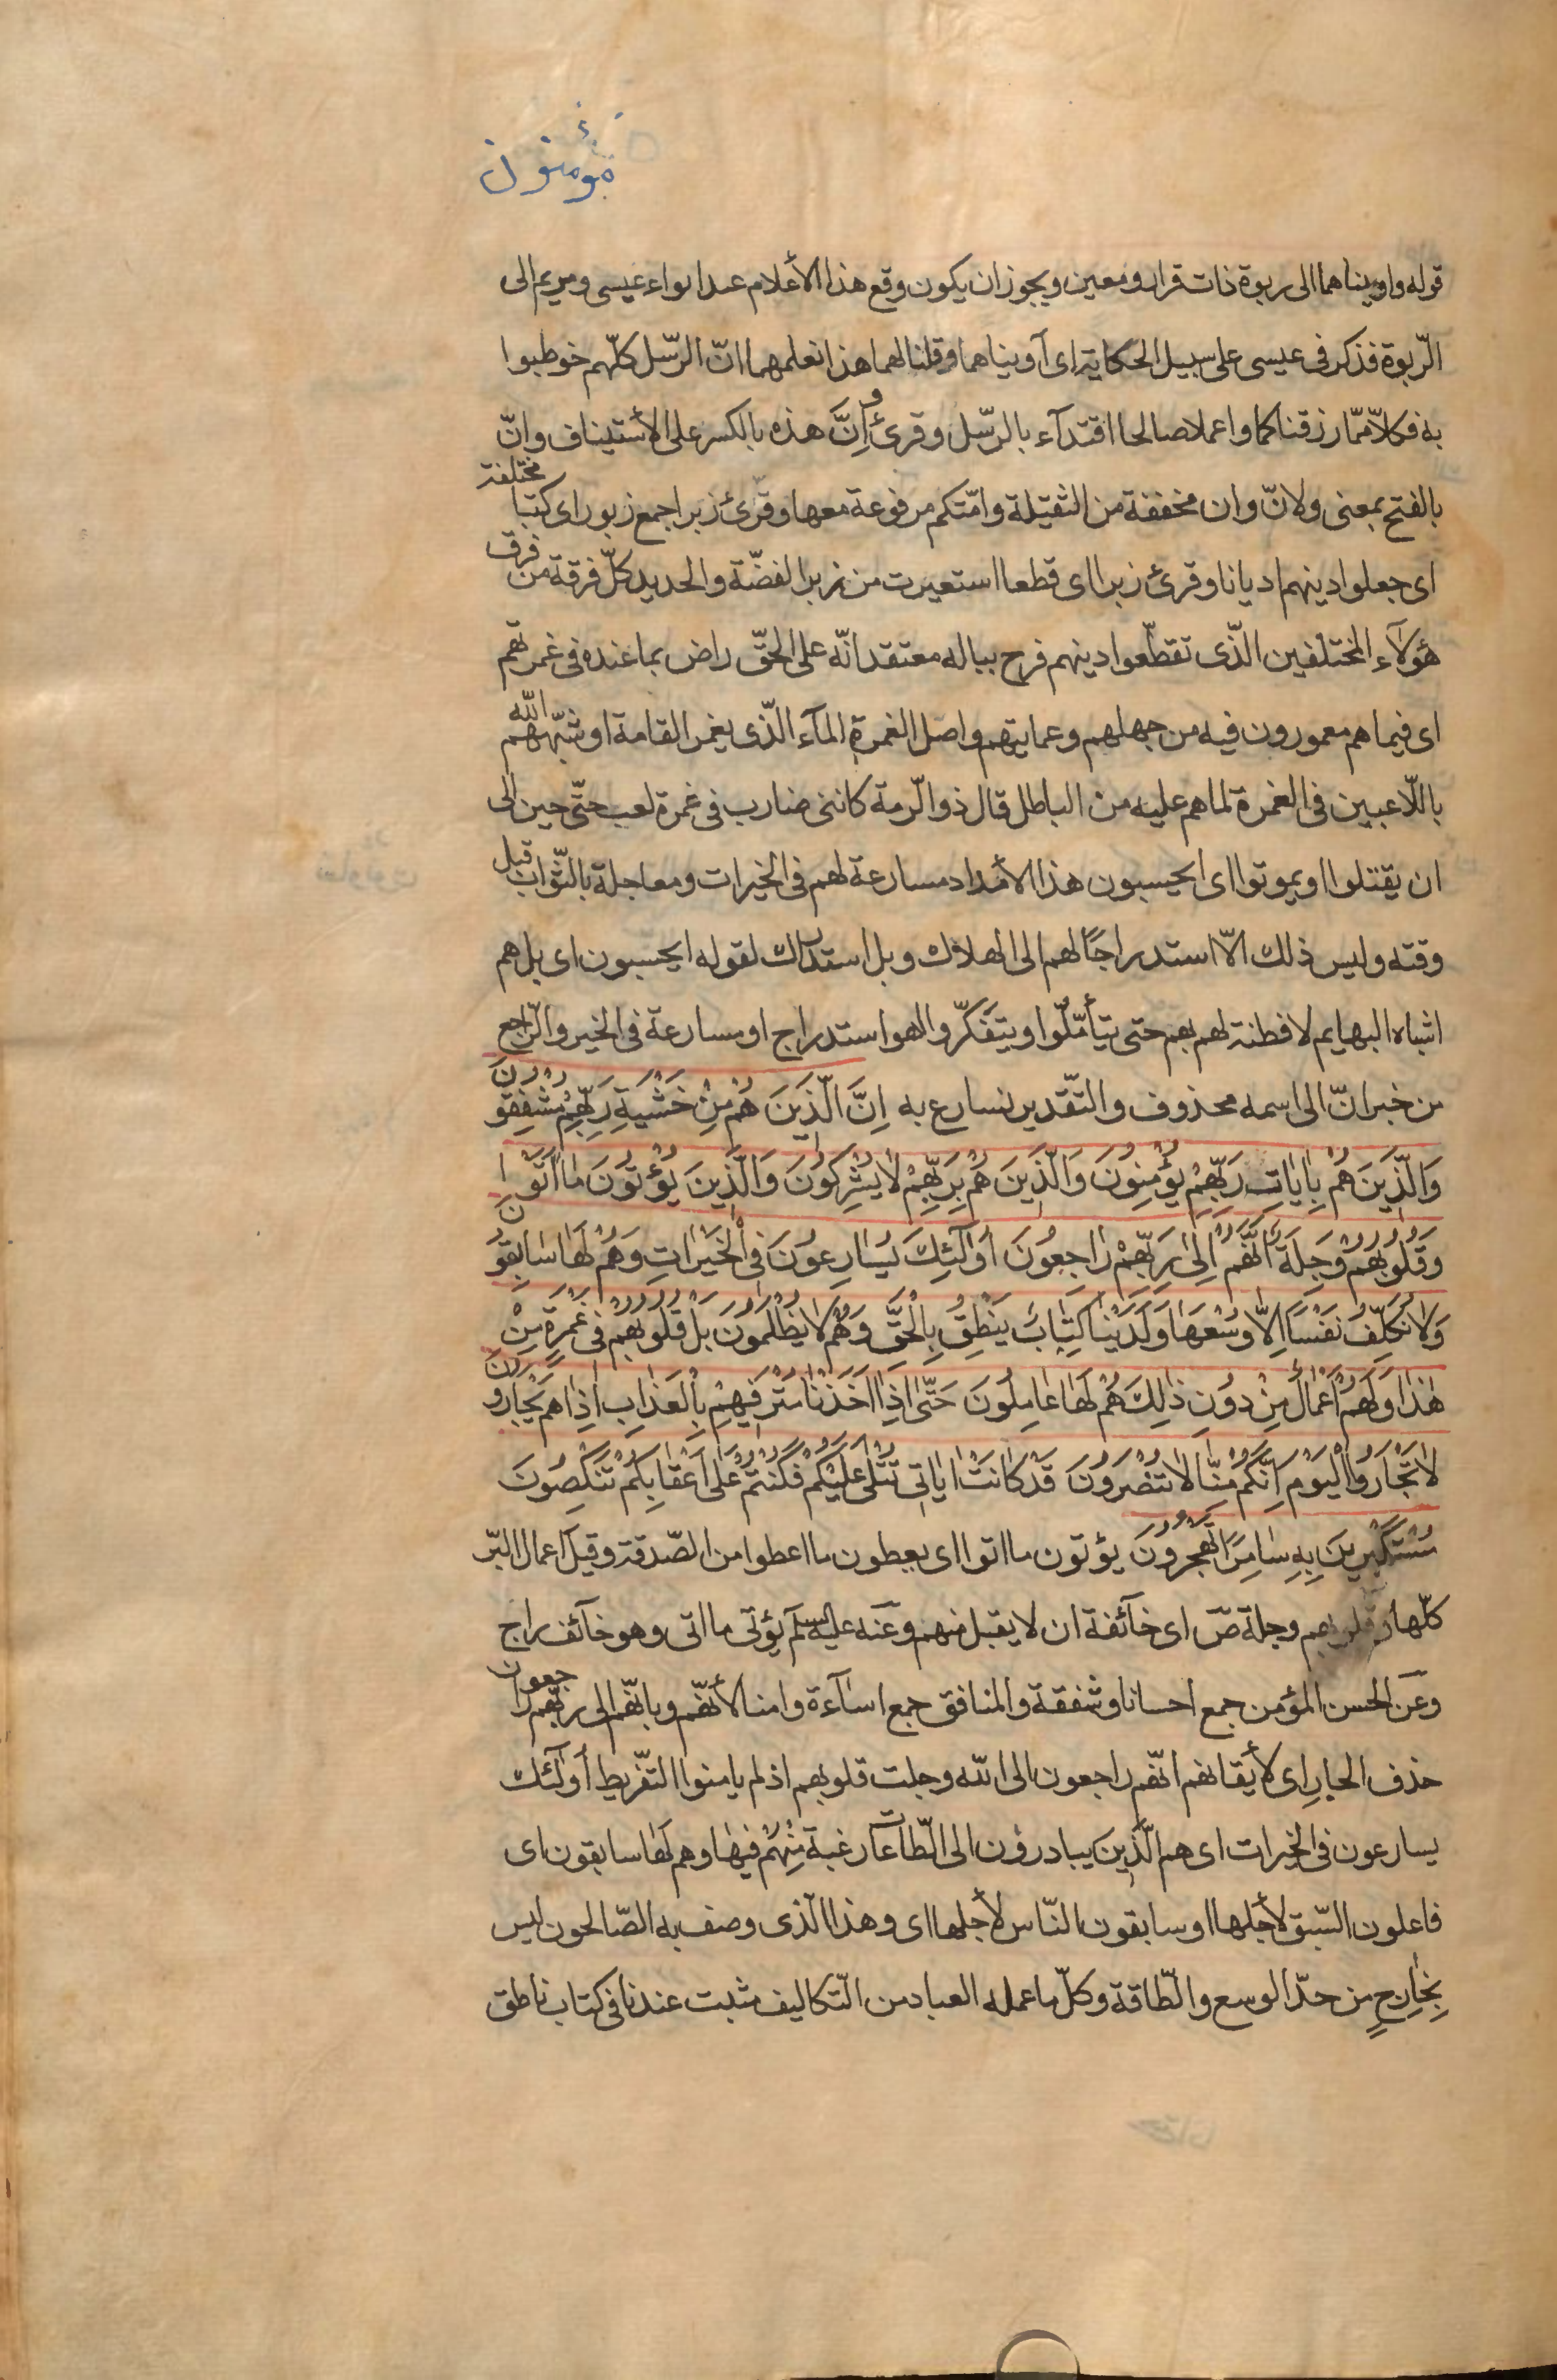 مؤمنون
قوله واويناهما الى ربوة ذات قرار ومعين ويجوز ان يكون وقع هذا الأعلام عند ايواء عيسى ومريم الى
الرّبوة فذكر فى عيسى على سبيل الحكاية اى آويناهما وقلنا لهما هذا نعلمهما انّ الرّسل كلّهم خوطبوا
به فكلا ممّا رزقناكما واعملا صالحا اقتدآء بالرّسل وقرئ وَاِنَّ هذه بالكسر على الأستيناف وانّ
بالفتح بمعنى ولانّ وان مخففة من الثقيلة وامّتكم مرفوعة معها وقرئ زبرا جمع زبور اى كتبا مختلفة
اى جعلوا دينهم اديانا وقرئ زبرا اى قطعا استعيرت من زبر الفضّة والحديد كلّ فرقة من فرق
هؤلآء المختلفين الّذى تقطّعوا دينهم فرح بباله معتقد انّه على الحقّ راض بما عنده فى غمرتهم
اى فيما هم مغمورون فيه من جهلهم وعمايتهم واصل الغمرة المآء الّذى يغمر القامة او شبّههم الله
باللّاعبين فى الغمرة لما هم عليه من الباطل قال ذو الرّمة كاننى ضارب فى غمرة لعب حتّى حين الى
ان يقتلوا او يموتوا اى ايحسبون هذا الأمداد مسارعة لهم فى الخيرات ومعاجلة بالثّواب قبل
وقته وليس ذلك الّا استدراجًا لهم الى الهلاك وبل استدراك لقوله ايحسبون اى بل هم
اشباه البهايم لا فطنة لهم بهم حتى يتأمّلوا ويتفكّروا اهو استدراج او مسارعة فى الخير والرّاجع
من خبر انّ الى اسمه محذوف والتّقدير نسارع به اِنَّ الَّذِينَ هُمْ مِنْ خَشْيَةِ رَبِّهِمْ مُشْفِقُونَ
وَالَّذِينَ هُمْ بِاٰيَاتِ رَبِّهِمْ يُؤْمِنُونَ وَالَّذِينَ هُمْ بِرَبِّهِمْ لَا يُشْرِكُونَ وَالَّذِينَ يُؤْتُونَ مَا اٰتَوْا
وَقُلُوبُهُمْ وَجِلَةٌ اَنَّهُمْ اِلٰى رَبِّهِمْ رَاجِعُونَ اُولٰٓئِكَ يُسَارِعُونَ فِى الْخَيْرَاتِ وَهُمْ لَهَا سَابِقُونَ
وَلَا نُكَلِّفُ نَفْسًا اِلَّا وُسْعَهَا وَلَدَيْنَا كِتَابٌ يَنْطِقُ بِالْحَقِّ وَهُمْ لَا يُظْلَمُونَ بَلْ قُلُوبُهُمْ فِى غَمْرَةٍ مِنْ
هٰذَا وَلَهُمْ اَعْمَالٌ مِنْ دُونِ ذٰلِكَ هُمْ لَهَا عَامِلُونَ حَتّٰى اِذَا اَخَذْنَا مُتْرَفِيهِمْ بِالْعَذَابِ اِذَا هُمْ يَجْأَرُونَ
لَا تَجْأَرُوا الْيَوْمَ اِنَّكُمْ مِنَّا لَا تُنْصَرُونَ قَدْ كَانَتْ اٰيَاتِى تُتْلٰى عَلَيْكُمْ فَكُنْتُمْ عَلٰى اَعْقَابِكُمْ تَنْكِصُونَ
مُسْتَكْبِرِينَ بِهِ سَامِرًا تَهْجُرُونَ يؤتون ما اتوا اى يعطون ما اعطوا من الصّدقة وقيل اعمال البرّ
كلّها وقلوبهم وجلة صّ اى خآئفة ان لا يقبل منهم وعَنه عليه السلم يؤتى ما اتى وهو خآئف راج
وعَن الحسن المؤمن جمع احسانا وشفقة والمنافق جمع اسآءة وامنا لأنّهم وبانّهم الى ربّهم راجعون
حذف الجار اى لأيقانهم انّهم راجعون الى الله وجلت قلوبهم اذ لم يامنوا التّفريط أولٰٓئك
يسارعون فى الخيرات اى هم الَّذِينَ يبادرون الى الطّاعات رغبة مِنْهُمْ فيها وهم لَهَا سابقون اى
فاعلون السّبق لأجلها او سابقون النّاس لأجلها اى وهذا الّذى وصف به الصّالحون ليس
بِخَارِجٍ من حدّ الوسع والطّاقة وكلّ ما عمله العباد من التّكاليف مثبت عندنا فى كتاب ناطق